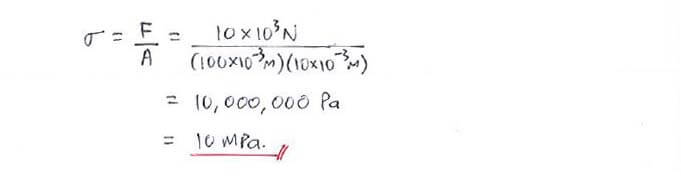 σ = F/A = 10×10³N / (100×10⁻³M)(10×10⁻³M)
= 10,000,000 Pa
= 10 MPa.